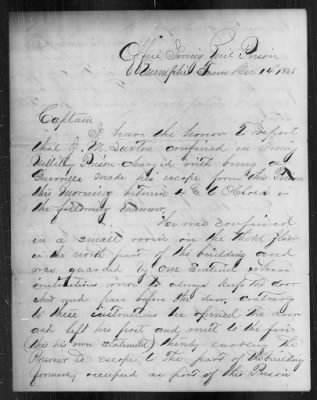 Office Irving Mil Prison
Memphis Tenn Dec 14" 1865
Captain
I have the honor to report
that J. M. Luxton confined in Irving
Military Prison charged with being a
Guerrilla made his escape from this Prison
this morning between 4 & 6 O Clock in
the following manner.
He was confined
in a small room on the third floor
in the north part of the building and
was guarded by one Sentinel whose
instructions were to always keep the door
shut and pass before the door, contrary
to these instructions he opened the door
and left his post and went to the fire
(this his own statement) thereby enabling the
Prisoner to escape to the part of the building
formerly occupied as part of this Prison